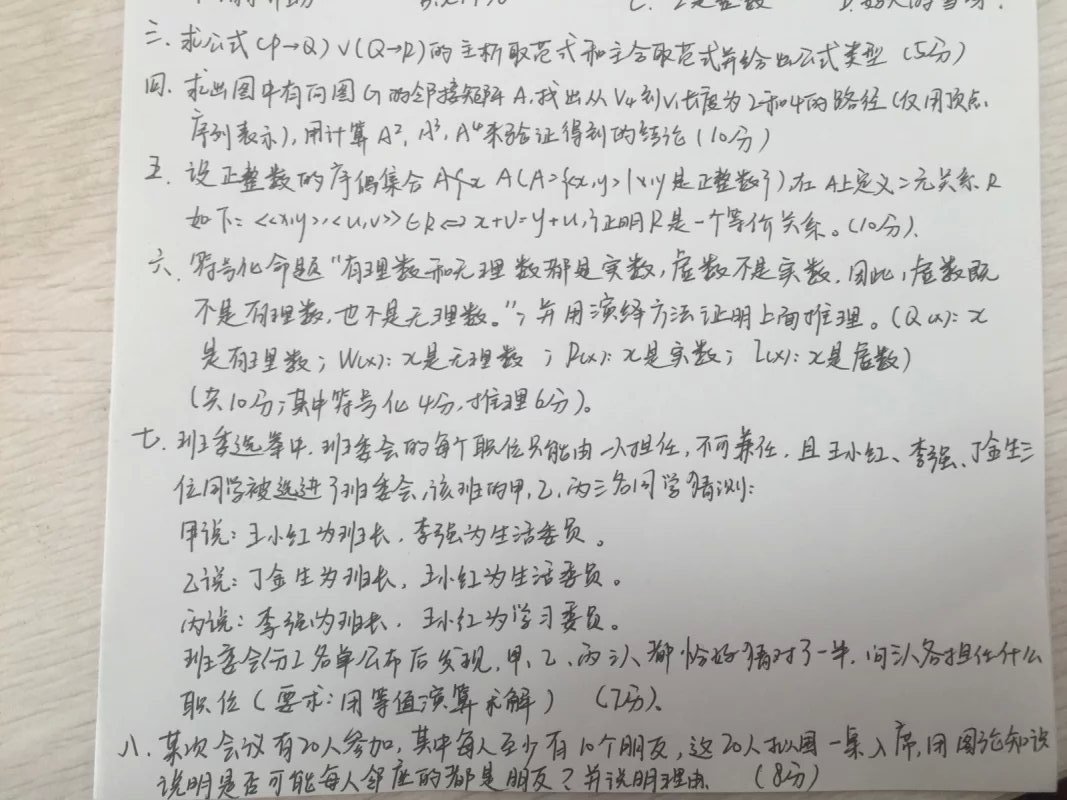 C. 2是整数
三、求公式(P→Q)∨(Q→R)的主析取范式和主合取范式并给出公式类型(5分)
四、求出图中有向图G的邻接矩阵A,找出从V4到V1长度为2和4的路径(仅用顶点
序列表示),用计算A²、A³、A⁴来验证得到的结论(10分)
五、设正整数的序偶集合A (A={<x,y>|x,y是正整数}),在A上定义二元关系R
如下:<<x,y>,<u,v>>∈R⇔x+v=y+u,证明R是一个等价关系。(10分).
六、符号化命题"有理数和无理数都是实数,虚数不是实数,因此,虚数既
不是有理数,也不是无理数。",并用演绎方法证明上面推理。(Q(x): x
是有理数; W(x): x是无理数 ; R(x): x是实数; I(x): x是虚数)
(共10分;其中符号化4分,推理6分)。
七、班委选举中,班委会的每个职位只能由一人担任,不可兼任,且王小红、李强、丁金生三
位同学被选进了班委会,该班的甲、乙、丙三名同学猜测:
甲说:王小红为班长,李强为生活委员。
乙说:丁金生为班长,王小红为生活委员。
丙说:李强为班长,王小红为学习委员。
班委会分工名单公布后发现,甲、乙、丙三人都恰好猜对了一半,问三人各担任什么
职位(要求:用等值演算求解) (7分)、
八、某次会议有20人参加,其中每人至少有10个朋友,这20人拟围一桌入席,用图论知识
说明是否可能每人邻座的都是朋友?并说明理由 (8分)